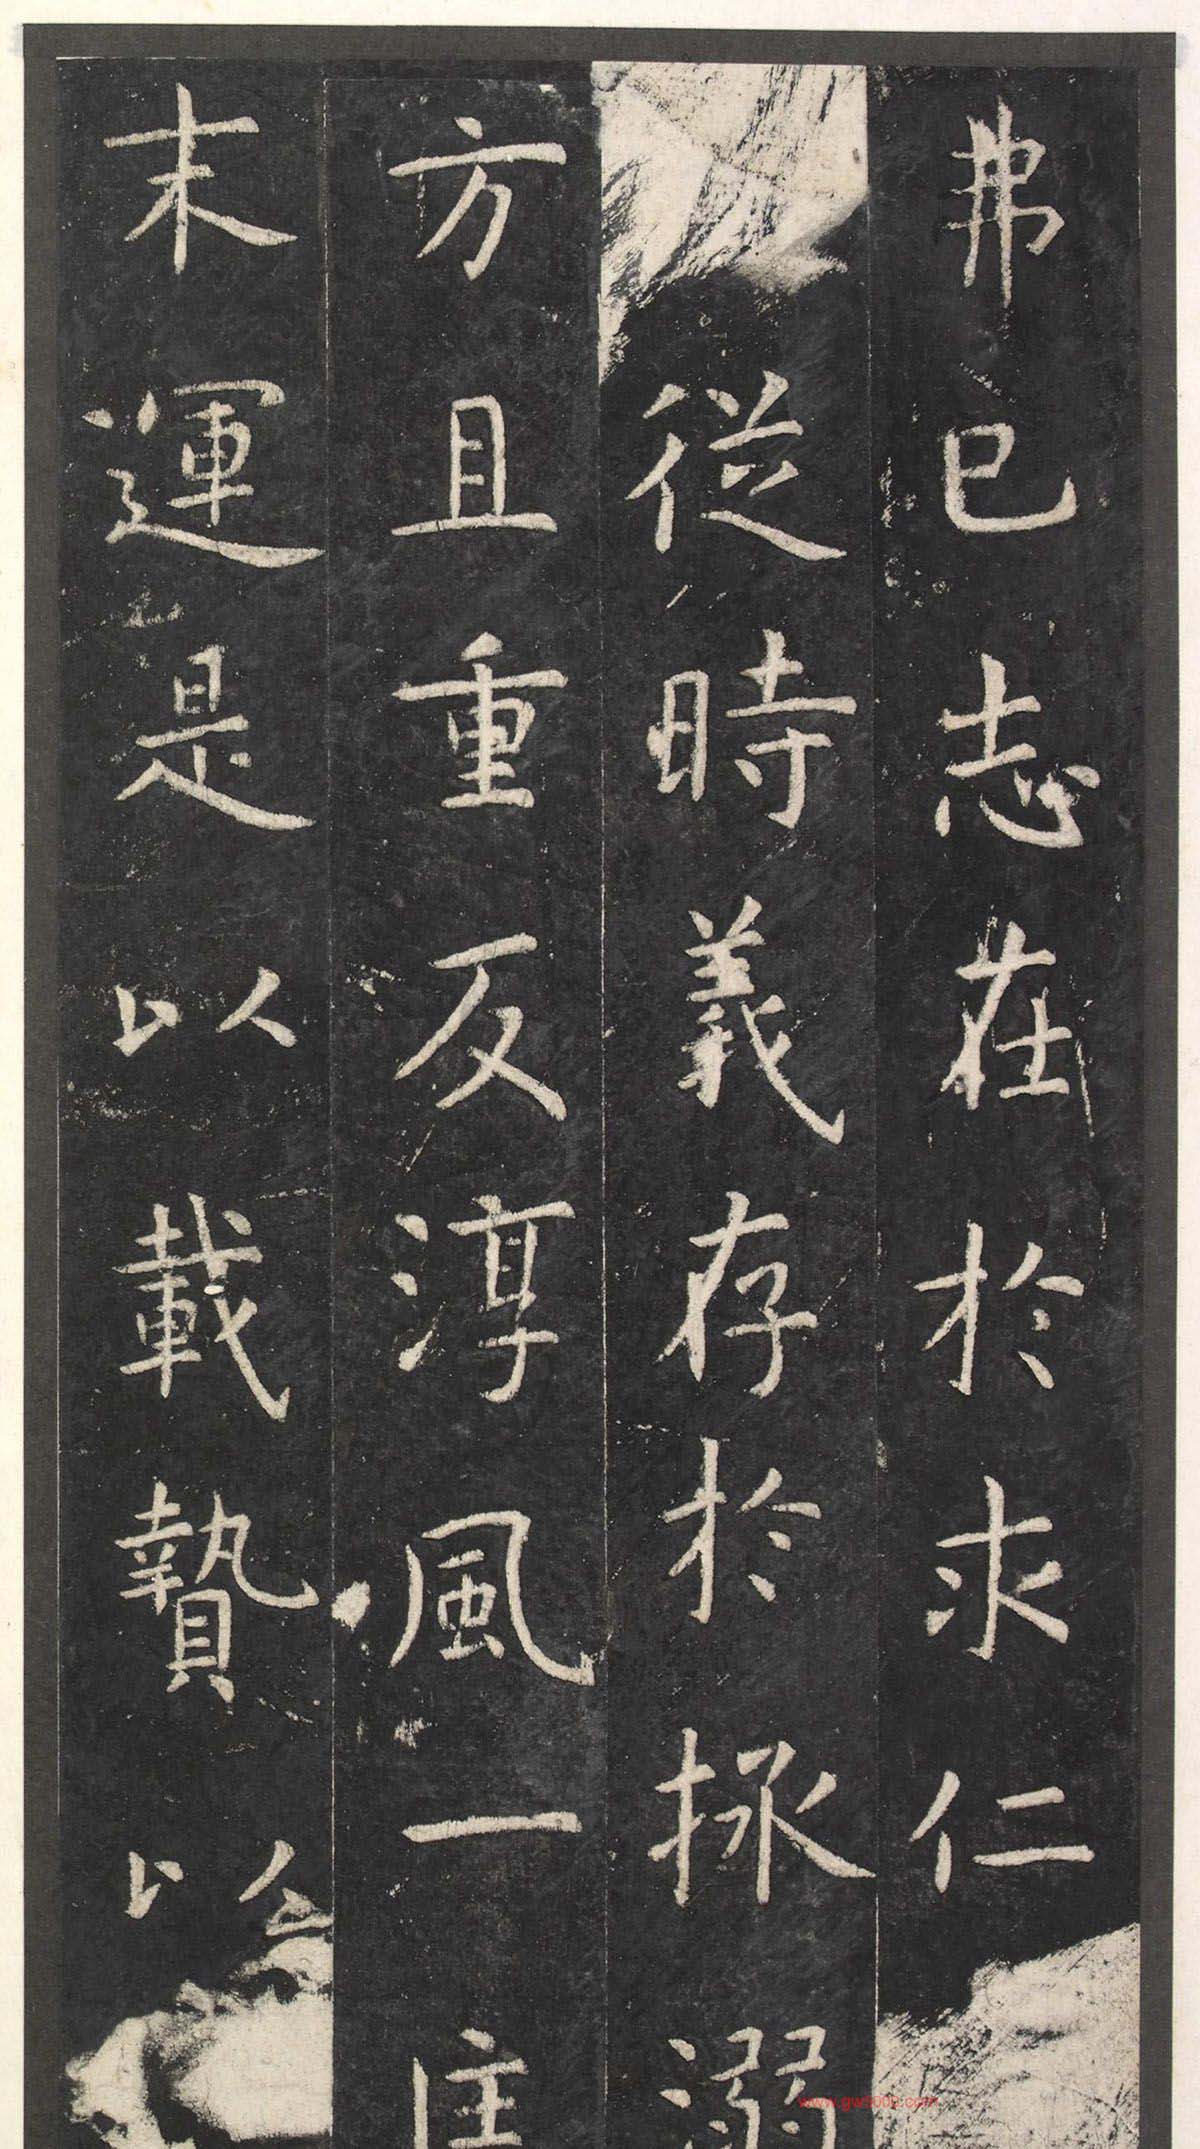 弗已志在於求仁
從時義存於拯溺
方且重反淳風一
末運是以載贄以
www.gw5000.com